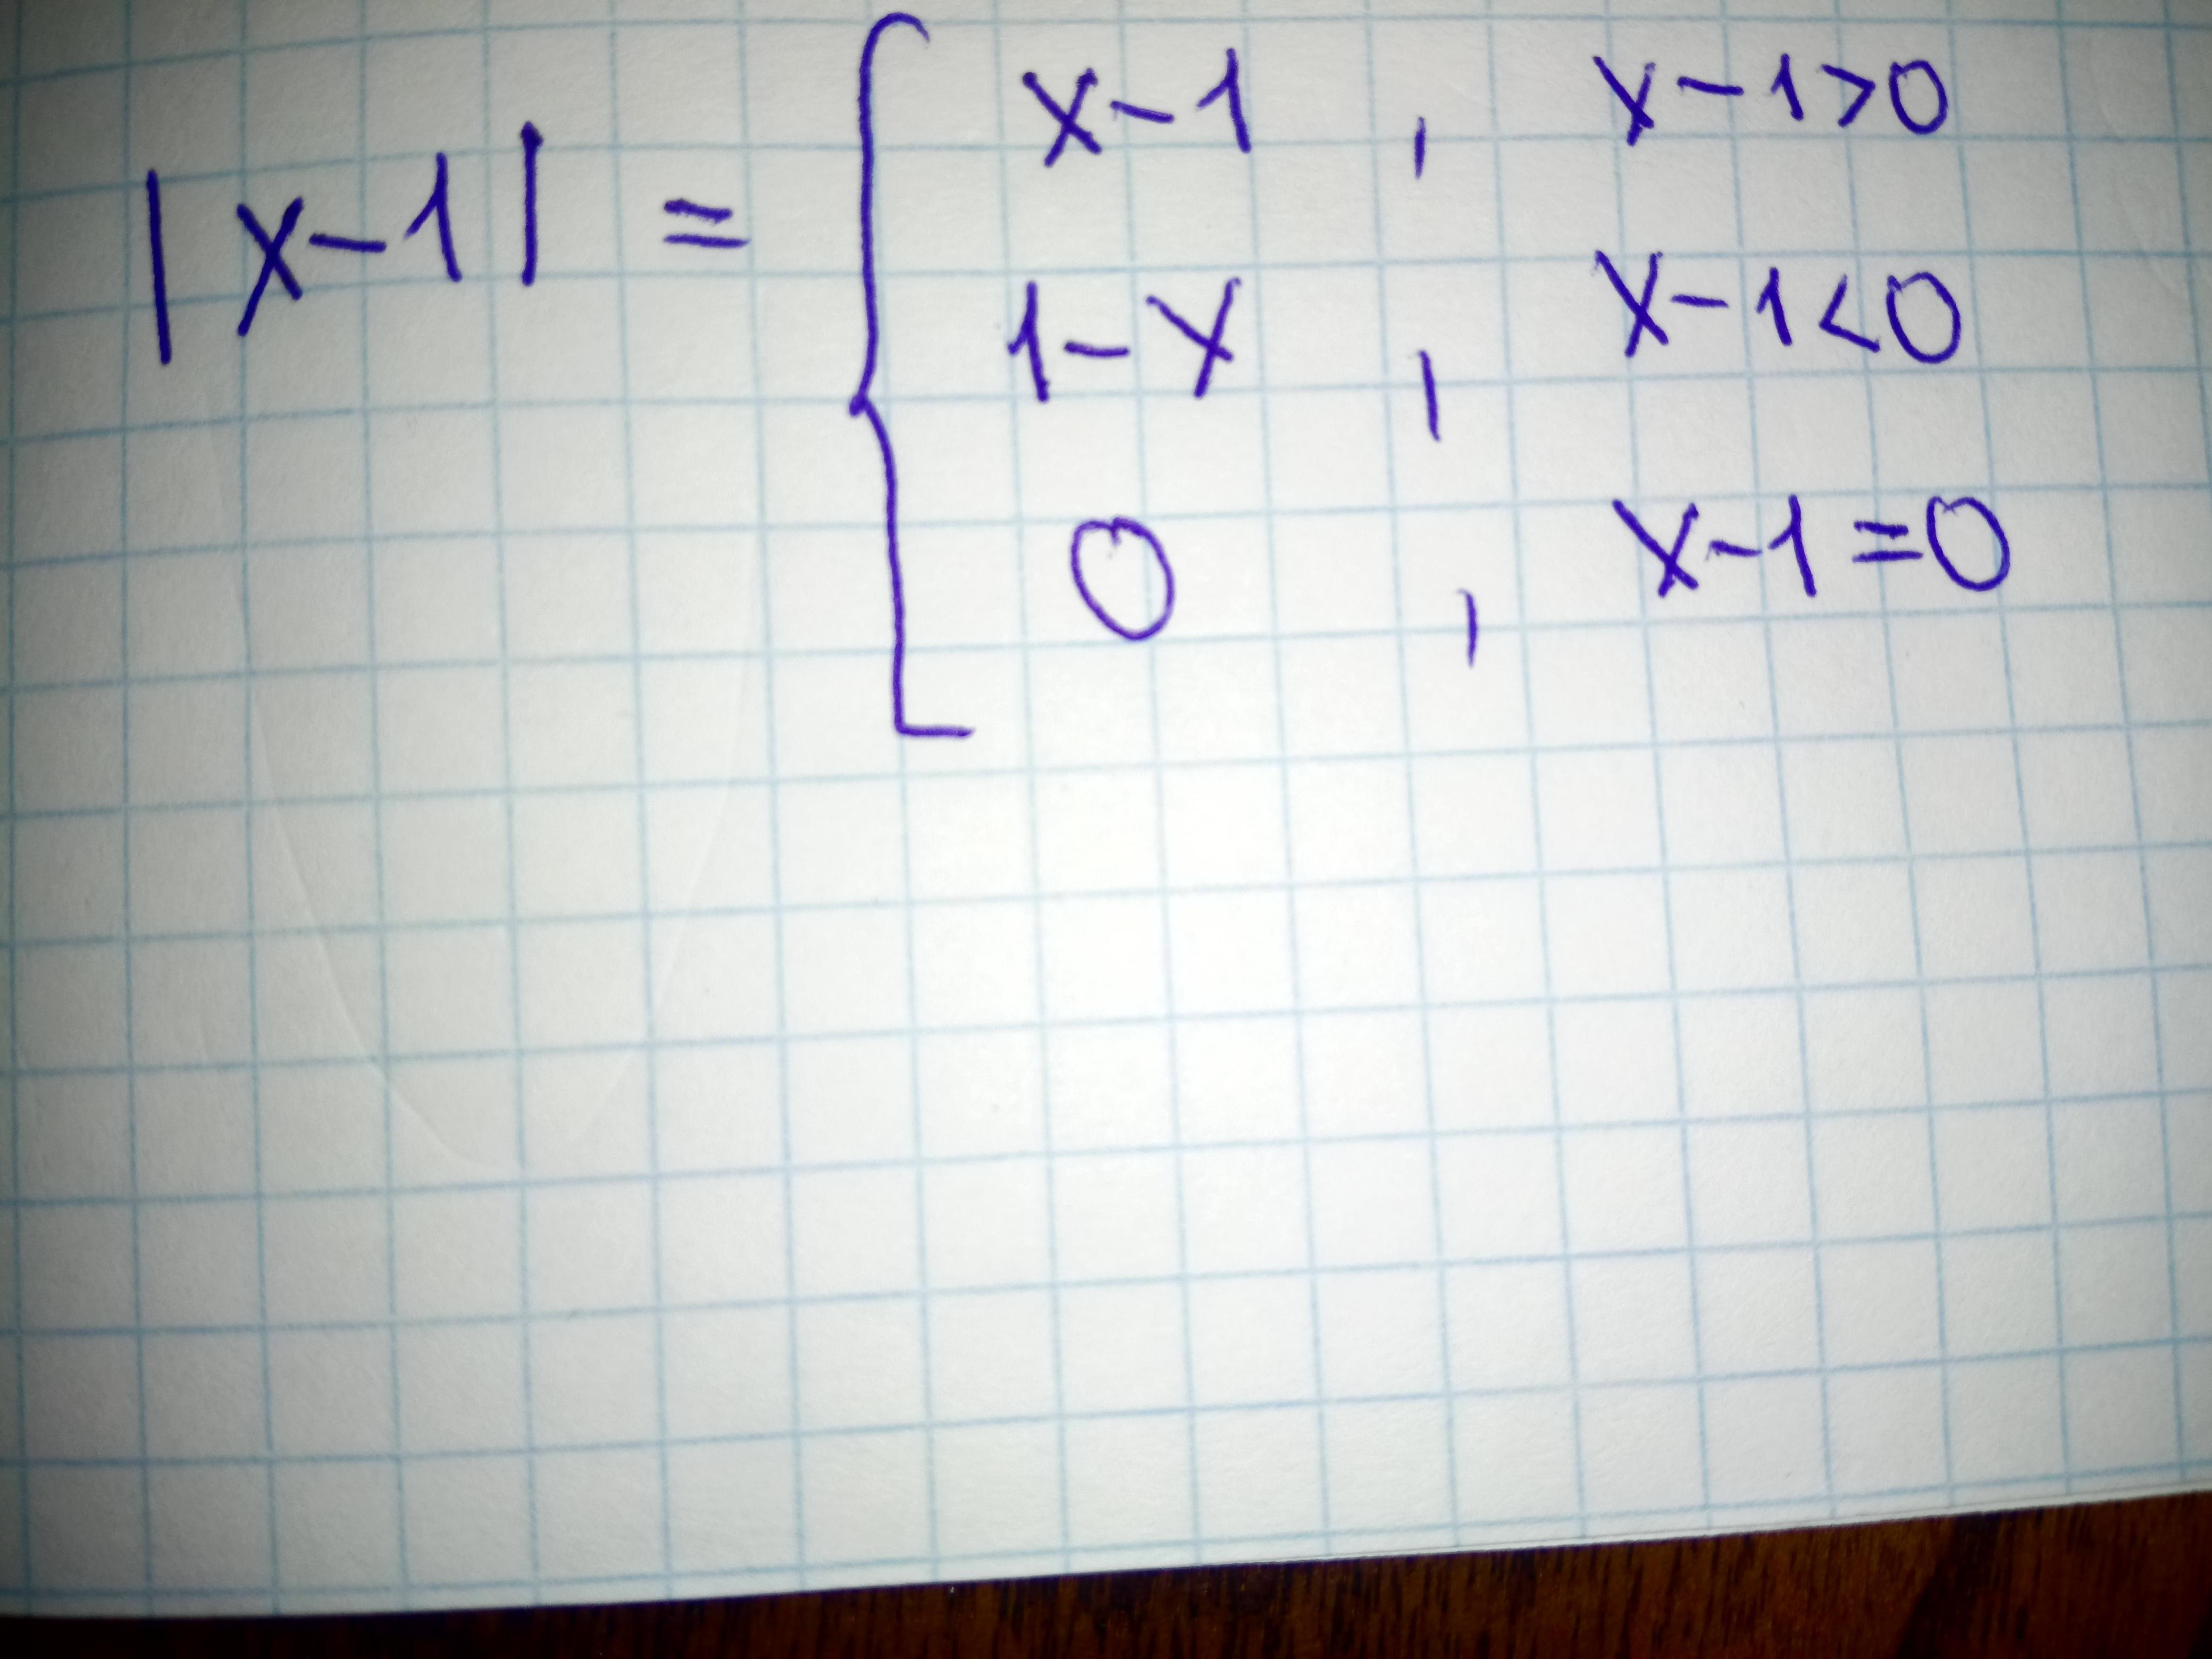 |x-1| = { x-1 , x-1>0
1-x , x-1<0
0 , x-1=0